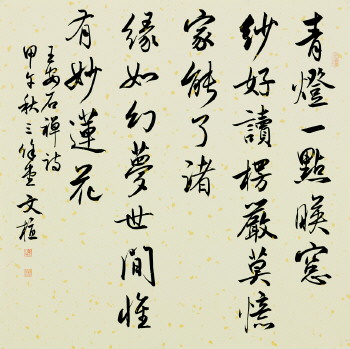 青燈一點映窓
紗好讀楞嚴莫憶
家能了諸
緣如幻夢世間惟
有妙蓮花
王安石禪詩
甲午秋三餘堂文植